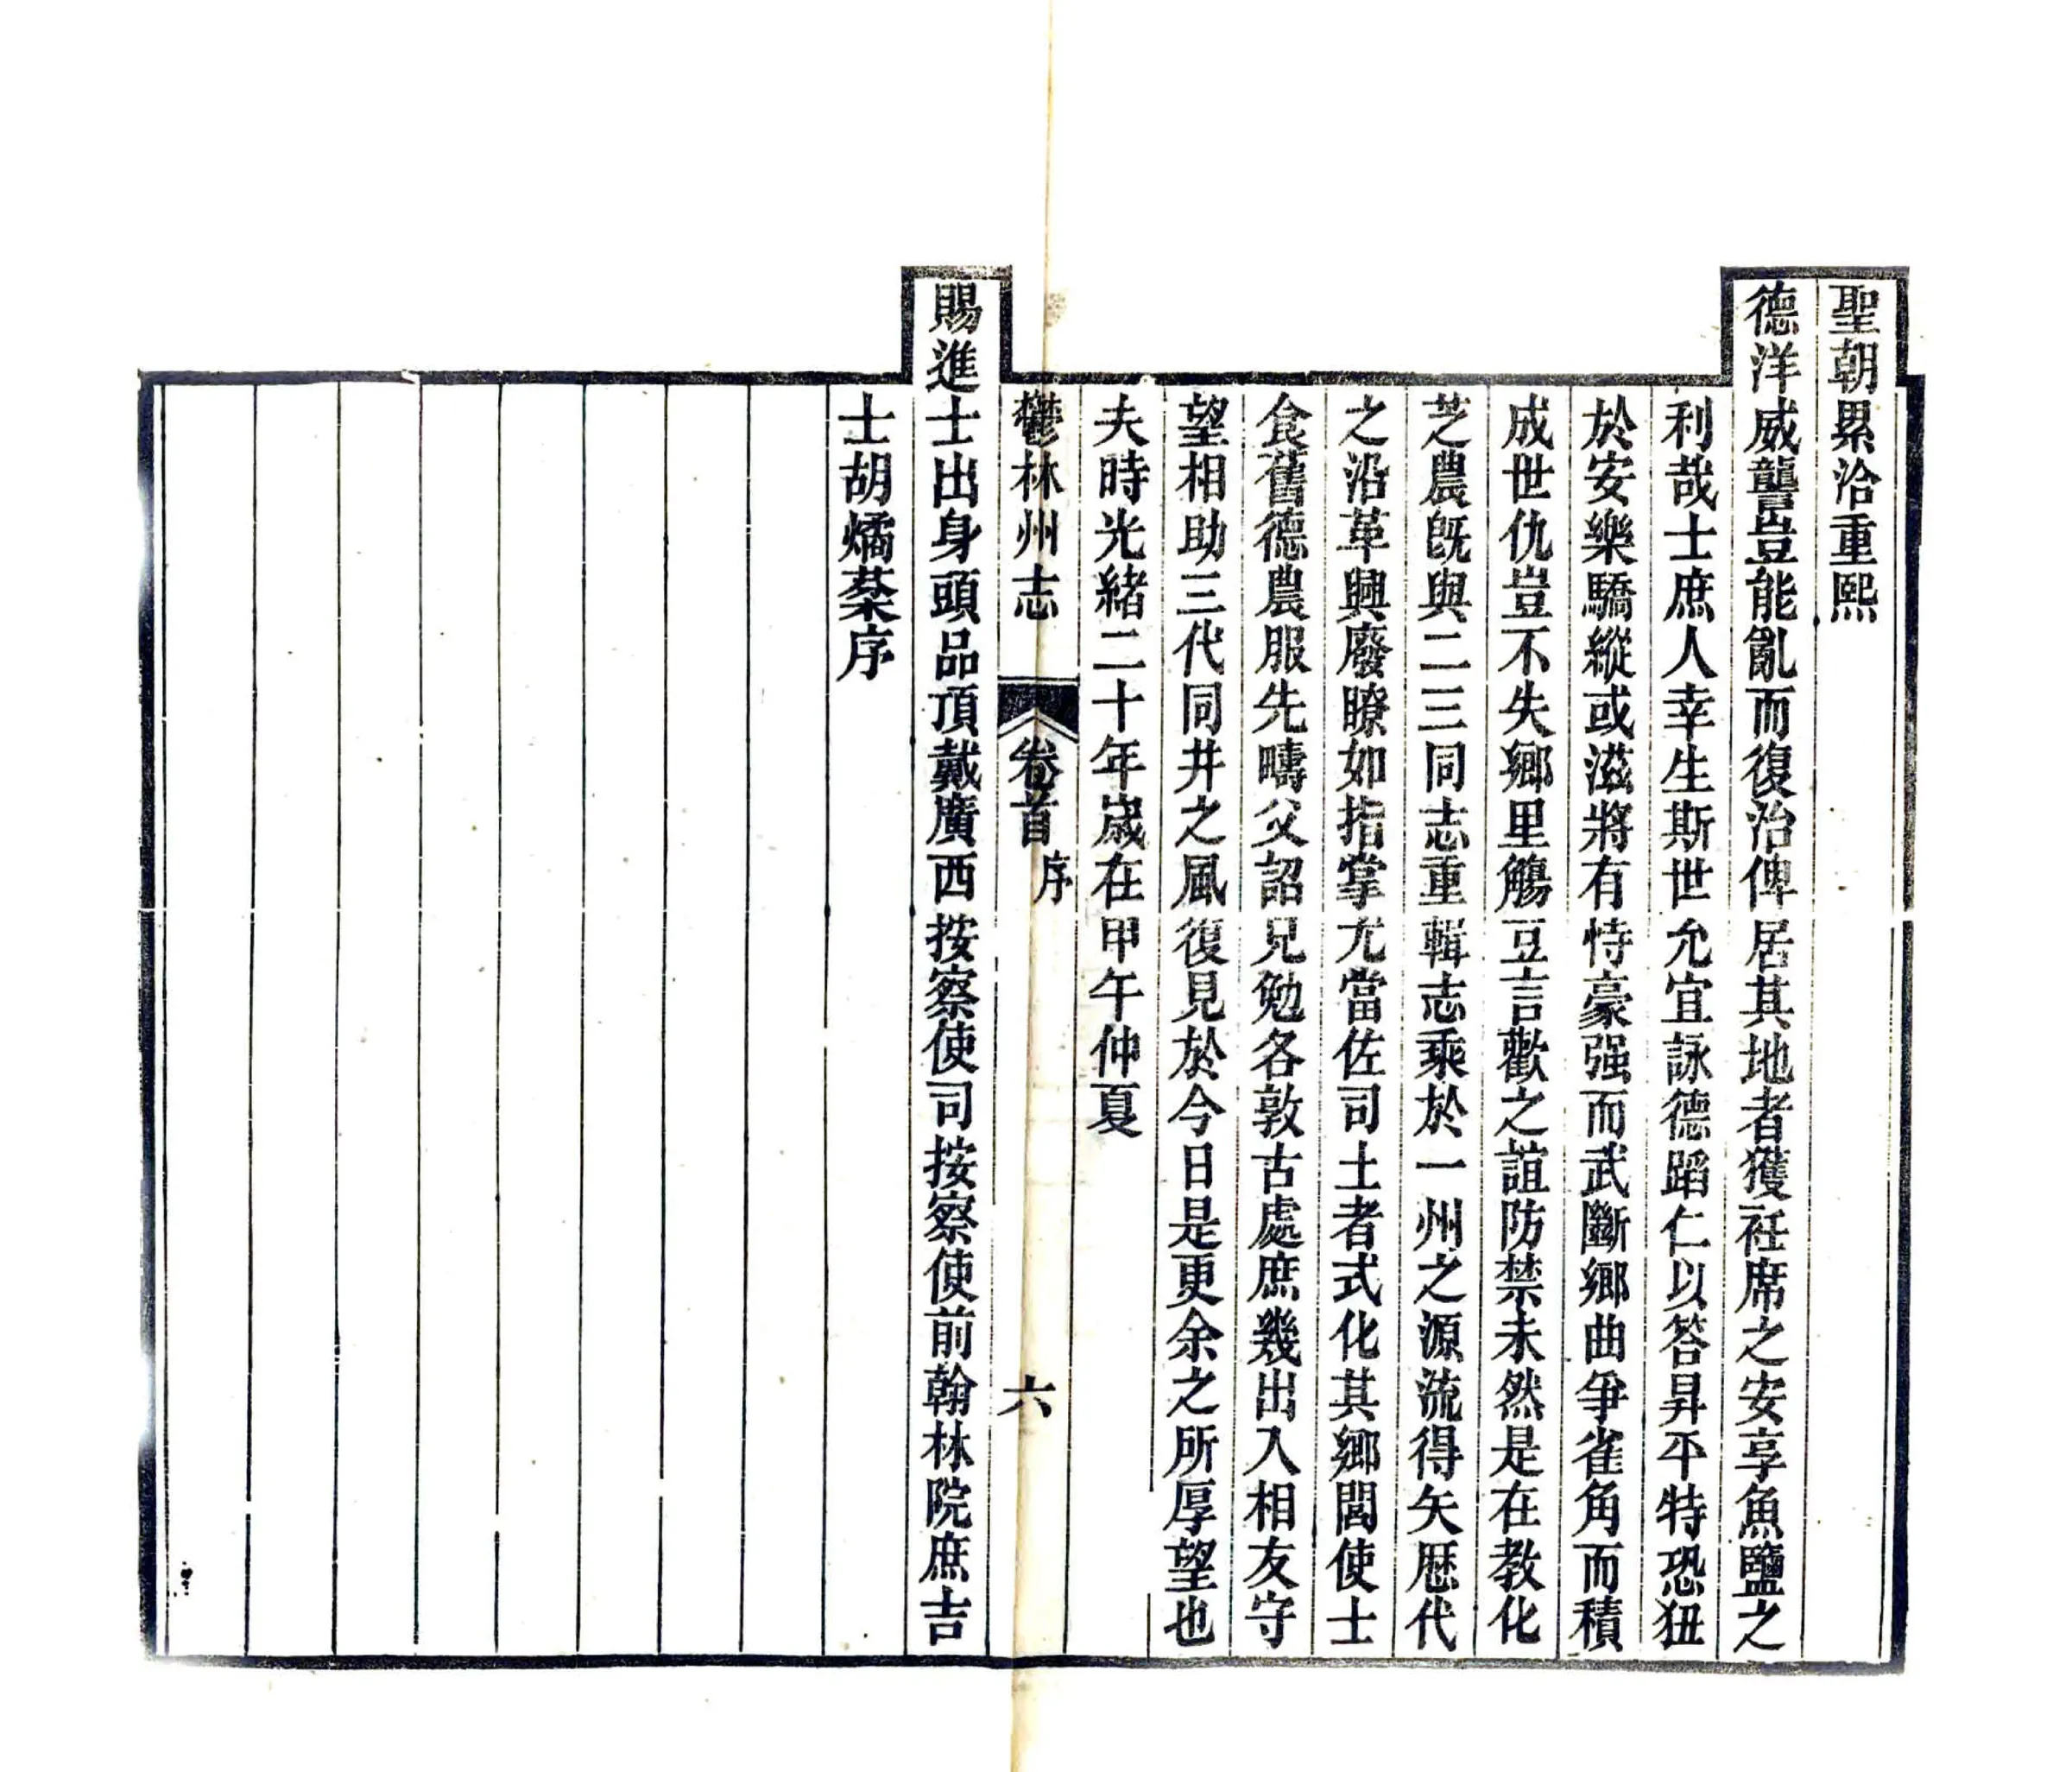 聖朝累洽重熙
德洋威讋豈能亂而復治俾居其地者獲袵席之安享魚鹽之
利哉士庶人幸生斯世允宜詠德蹈仁以答昇平特恐狃
於安樂驕縱或滋將有恃豪强而武斷鄉曲爭雀角而積
成世仇豈不失鄉里觴豆言歡之誼防禁未然是在教化
芝農旣與二三同志重輯志乘於一州之源流得矢厯代
之沿革興廢瞭如指掌尤當佐司土者式化其鄉閭使士
食舊德農服先疇父詔兄勉各敦古處庶幾出入相友守
望相助三代同井之風復見於今日是更余之所厚望也
夫時光緒二十年歲在甲午仲夏
鬱林州志 卷首 序 六
賜進士出身頭品頂戴廣西按察使司按察使前翰林院庶吉
士胡燏棻序